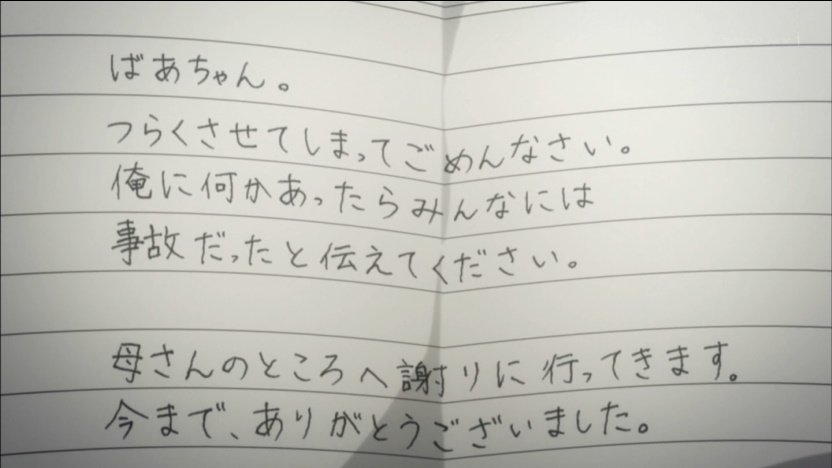 ばあちゃん。
つらくさせてしまってごめんなさい。
俺に何かあったらみんなには
事故だったと伝えてください。
母さんのところへ謝りに行ってきます。
今まで、ありがとうございました。